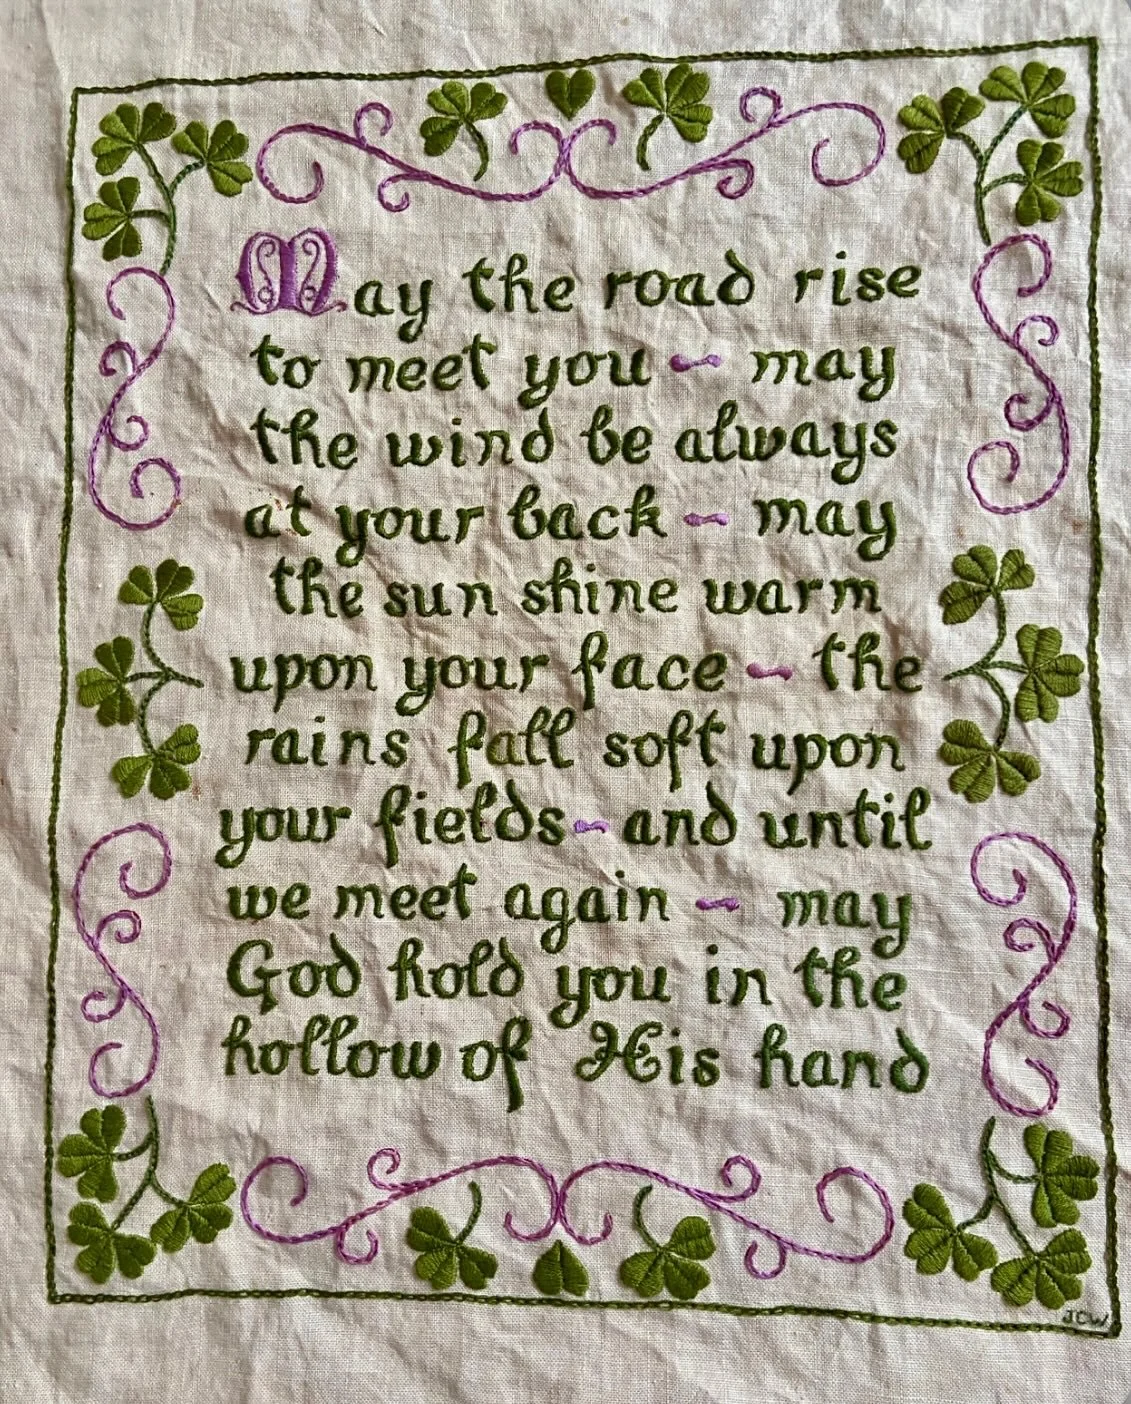 May the road rise
to meet you ~ may
the wind be always
at your back ~ may
the sun shine warm
upon your face ~ the
rains fall soft upon
your fields ~ and until
we meet again ~ may
God hold you in the
hollow of His hand
JCW